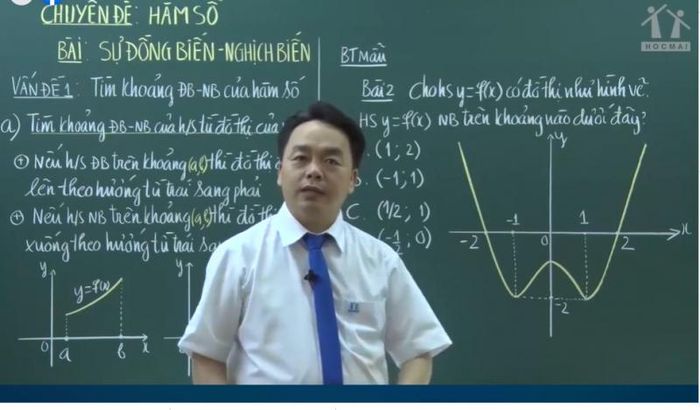 CHUYÊN ĐỀ: HÀM SỐ
BÀI: SỰ ĐỒNG BIẾN - NGHỊCH BIẾN
VẤN ĐỀ 1: Tìm khoảng ĐB-NB của hàm số
a) Tìm khoảng ĐB-NB của h/s từ đồ thị của
⊕ Nếu h/s ĐB trên khoảng (a,b) thì đồ thị
lên theo hướng từ trái sang phải
⊕ Nếu h/s NB trên khoảng (a,b) thì đồ thị
xuống theo hướng từ trái
y
y=f(x)
0 a b x
y
BT Mẫu
Bài 2 Cho hs y=f(x) có đồ thị như hình vẽ.
HS y=f(x) NB trên khoảng nào dưới đây?
(1; 2)
(-1; 1)
C. (1/2; 1)
(-1/2; 0)
y
-1 1
-2 0 2 x
-2
HOCMAI